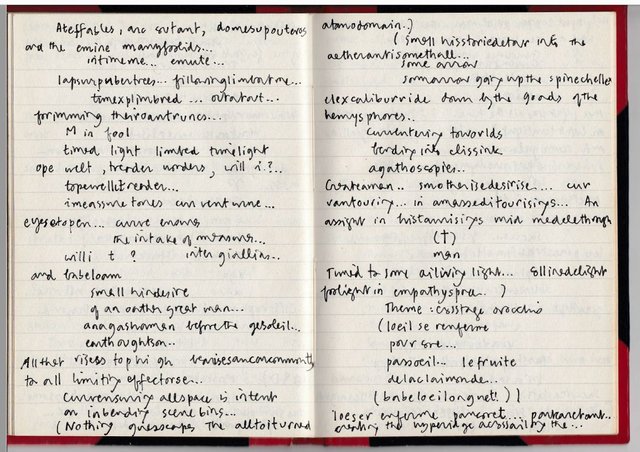 Ateffables, arc sutant, domesupouteros
and the emine manyfoolids...
intimeme... emute...
lapsurpubertrees... fillaringlimbotme...
timexplimbred... outatout...
forimming theiroantrunces...
M in fool
timed light limbed timelight
ope welt, treader norders, will i?..
topewelletreader...
imeassuretones curventwine...
eyesotopen... curve enours
the intake of measures...
will i t ? inter giallias..
and babeloam
small hindesire
of an another great man...
anagashaman before the gesoleil...
earthoughtson..
All that risess tophi gh
to all limitiry effectorse...
currensuriry allspace is intent
on inbendiry scene bins...
(Nothing guesscapes The alltoiturned
atomodomain.)
(small hisstoriedetour into the
aetherantisomethall...
some arrow
somarrow gary up the spinechelle
elexcaliburride down by the goads of the
hemysphores..
currentering toworlds
bording into elissink
agathoscopies..
Createman.. smotherisedesirise... cur
vantouriry... in amasseditourisirys... An
assight in histannisirys mid medelethrough
(†)
man
Tuned to some ailiviry light... follinedelight
foolight in empathyspree.. )
Theme : crosstage orocchio
(loeil se renferme
pour sre...
passoeil... le fruite
delaclairmonde...
(babeloeilongnet!) )
loeser enforme pancoret...
creating the hyperidge acrssail by the...